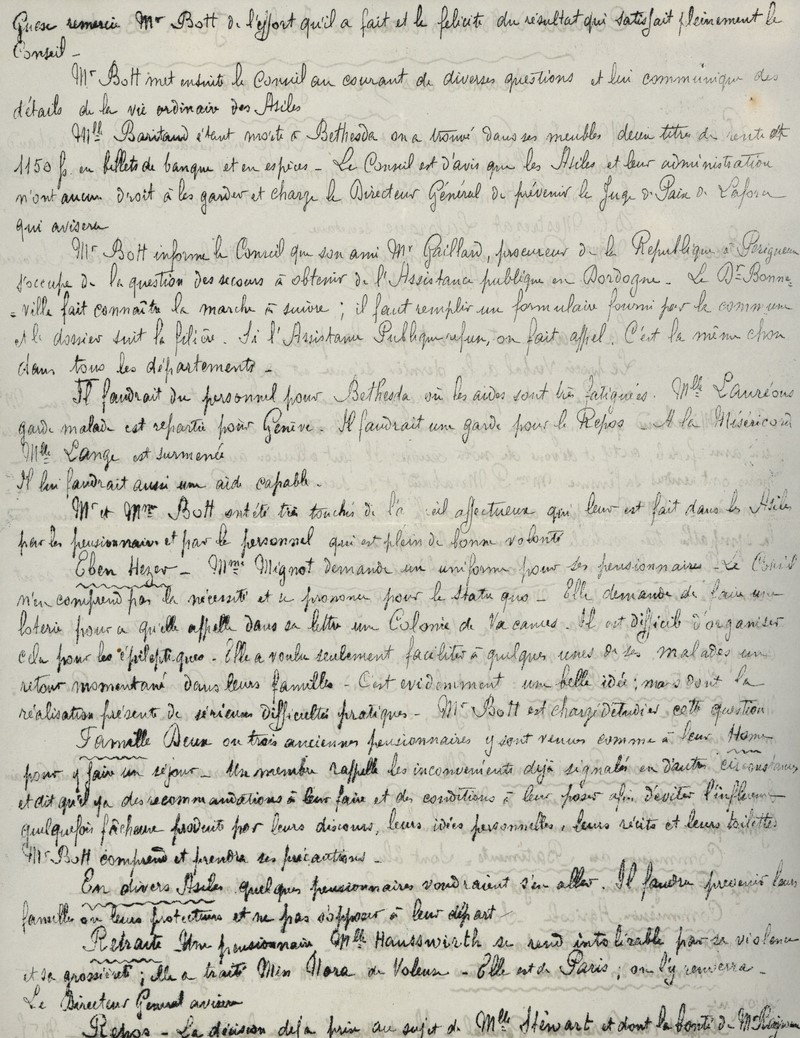 Guex remercie Mr Bott de l'effort qu'il a fait et le felicite du résultat qui satisfait pleinement le
Conseil -
Mr Bott met ensuite le Conseil au courant de diverses questions et lui communique des
détails de la vie ordinaire des Asiles
Mlle Barstaud étant morte à Bethesda on a trouvé dans ses meubles deux titres de rente et
1150 f. en billets de banque et en espèces - Le Conseil est d'avis que les Asiles et leur administration
n'ont aucun droit à les garder et charge le Directeur Général de prévenir le Juge de Paix de Laforce
qui avisera
Mr Bott informe le Conseil que son ami Mr Gaillard, procureur de la Republique à Perigueux
s'occupe de la question des secours à obtenir de l'Assistance publique en Dordogne - Le Dr Bonne-
-ville fait connaître la marche à suivre ; il faut remplir un formulaire fourni par la commune
et le dossier suit la filière. Si l'Assistance Publique refuse, on fait appel. C'est la même chose
dans tous les départements -
Il faudrait du personnel pour Bethesda où les aides sont très fatiguées. Mlle Lauréous
garde malade est repartie pour Genève. Il faudrait une garde pour le Repos - A la Miséricorde
Mlle Lange est surmenée
Il lui faudrait aussi une aide capable.
Mr et Mme Bott ont été très touchés de l'a eil affectueux qui leur est fait dans les Asiles
par les pensionnaires et par le personnel qui est plein de bonne volonté
Eben Hezer - Mme Mignot demande un uniforme pour ses pensionnaires - Le Conseil
n'en comprend pas la nécessité et se prononce pour le statu quo - Elle demande de faire une
loterie pour ce qu'elle appelle dans sa lettre une Colonie de Vacances. Il est difficile d'organiser
cela pour les épileptiques - Elle a voulu seulement faciliter à quelques unes de ses malades un
retour momentané dans leurs familles - C'est evidemment une belle idée ; mais dont la
réalisation présente de sérieuses difficultés pratiques - Mr Bott est chargé d'étudier cette question
Famille Deux ou trois anciennes pensionnaires y sont venues comme à leur Home
pour y faire un séjour - Un membre rappelle les inconvenients déjà signalés en d'autres circonstances
et dit qu'il y a des recommandations à leur faire et des conditions à leur poser afin d'éviter l'influence
quelquefois fâcheuse produite par leurs discours, leurs idées personnelles, leurs récits et leurs toilettes
Mr Bott comprend et prendra ses précautions -
En divers Asiles quelques pensionnaires voudraient s'en aller. Il faudra prevenir leurs
familles ou leurs protecteurs et ne pas s'opposer à leur départ
Retraite Une pensionnaire Mlle Hausswirth se rend intolérable par sa violence
et sa grossièreté ; elle a traité Miss Nora de Voleuse - Elle est de Paris ; on l'y renverra -
Le Directeur Général avisera
Repos - La décision déjà prise au sujet de Mlle Stewart et dont la bonté de Mr